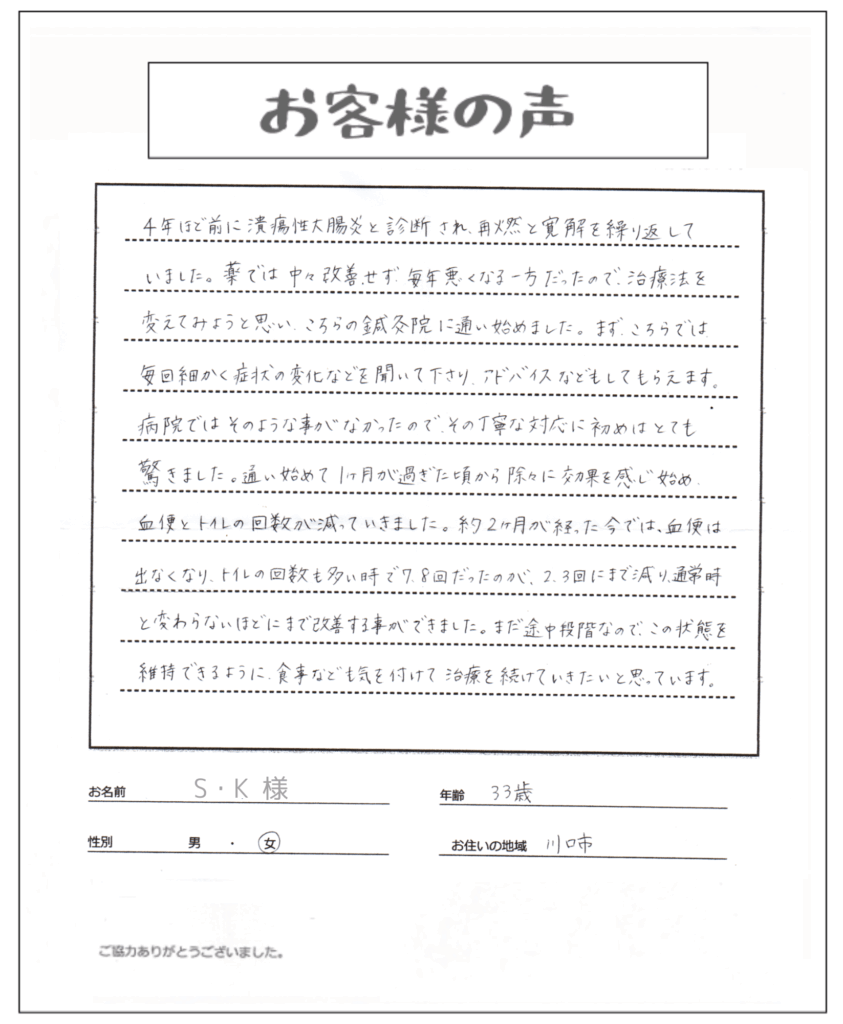 お客様の声
4年ほど前に潰瘍性大腸炎と診断され、再燃と寛解を繰り返して
いました。薬では中々改善せず、毎年悪くなる一方だったので、治療法を
変えてみようと思い、こちらの鍼灸院に通い始めました。まず、こちらでは
毎回細かく症状の変化などを聞いて下さり、アドバイスなどもしてもらえます。
病院ではそのような事がなかったので、その丁寧な対応に初めはとても
驚きました。通い始めて1ヶ月が過ぎた頃から除々に効果を感じ始め、
血便とトイレの回数が減っていきました。約2ヶ月が経った今では、血便は
出なくなり、トイレの回数も多い時で7、8回だったのが、2、3回にまで減り、通常時
と変わらないほどにまで改善する事ができました。まだ途中段階なので、この状態を
維持できるように、食事なども気を付けて治療を続けていきたいと思っています。
お名前 S・K 様 年齢 33歳
性別 男 ・ 女 お住いの地域 川口市
ご協力ありがとうございました。